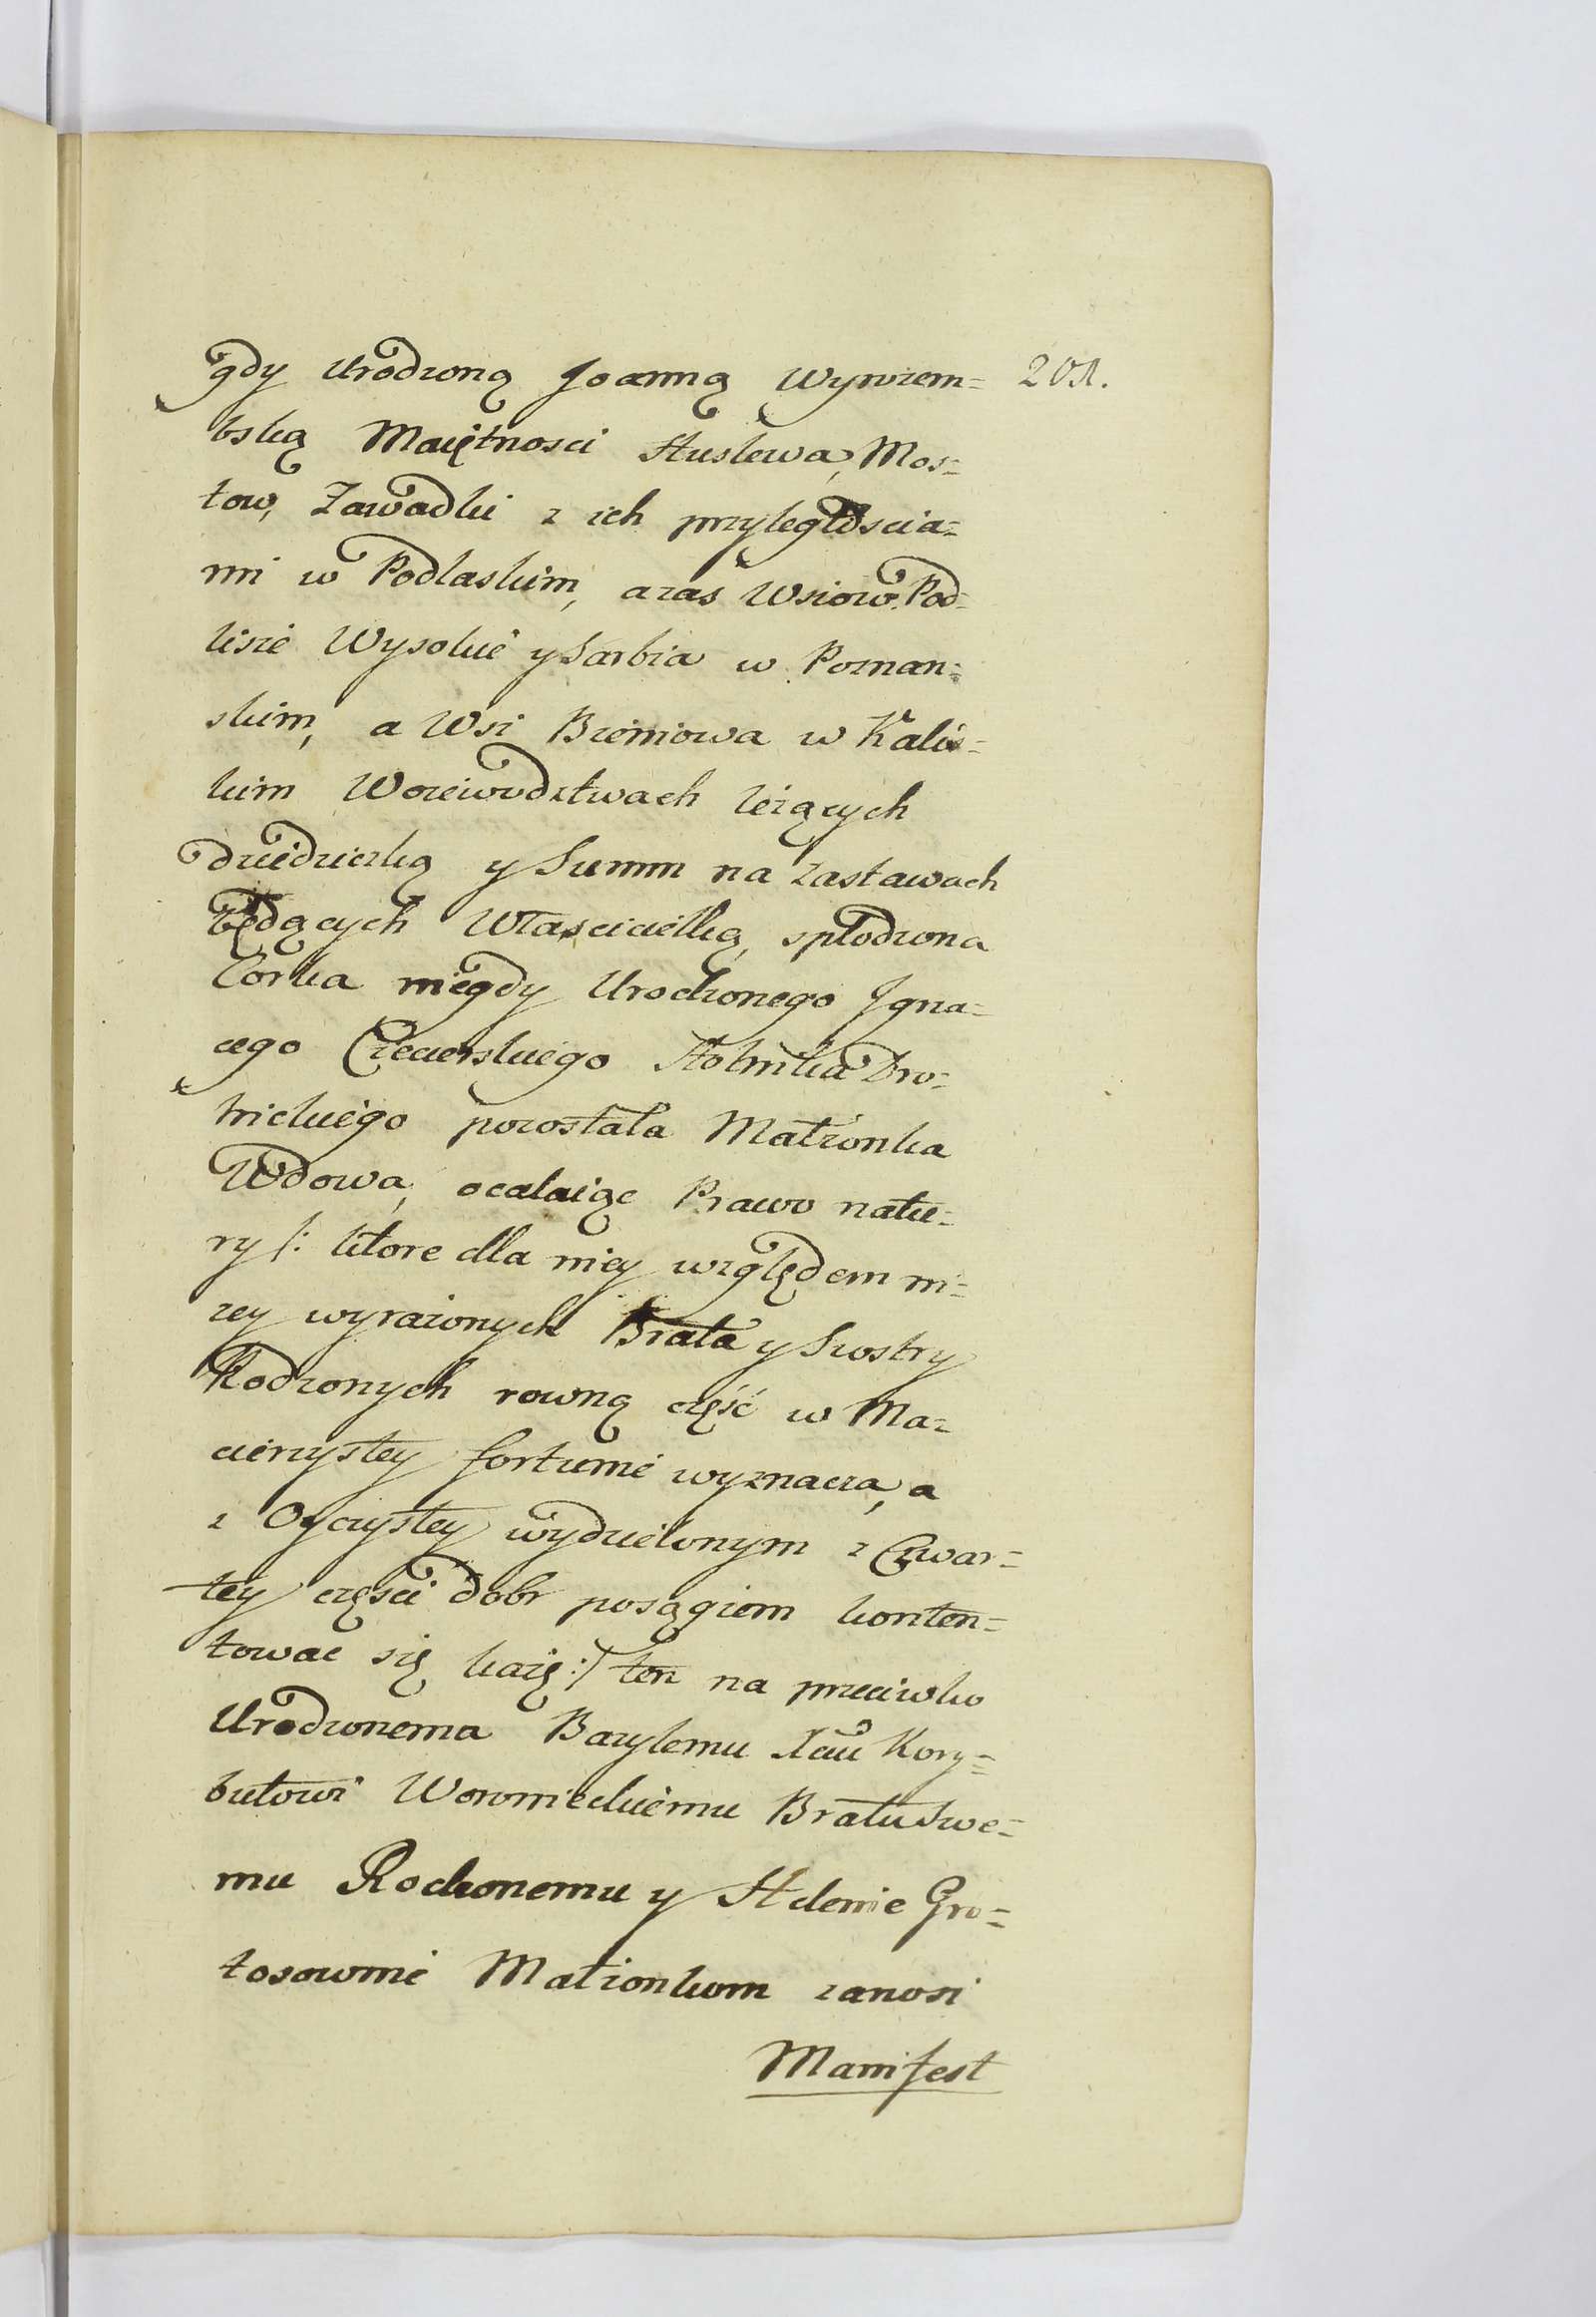 gdy Urodzoną Joanną Wyrozem= 201.
bską Maiętnosci Huslewa, Mos=
tow, Zawadki z ich przyległoscia=
mi w Podlaskim, azas Wsiow Pod=
lisie Wysokie y Sarbia w Poznan=
skim, a Wsi Broniowa w Kalis=
kim Woiewodztwach leżących
dziedziczką y Summ na zastawach
będących Włascicielką, spłodzona
Corka niegdy Urodzonego Igna=
cego Ciecierskiego Stolnika Dro=
hickiego pozostała Małżonka
Wdowa, ocalaiąc Prawo natu=
ry /: ktore dla niey względem ni=
zey wyrażonych Brata y Siostry
Rodzonych rowną część w Ma=
cierzystey fortunie wyznacza, a
z Oyczystey wydzielonym z Czwar=
tey częsci dobr posagiem konten=
towac się każę :/ ten na przeciwko
Urodzonemu Bazylemu Xciu Kory=
butowi Woronieckiemu Bratu Swe=
mu Rodzonemu y Helenie Gro=
tosownie Małżonkom zanosi
Manifest